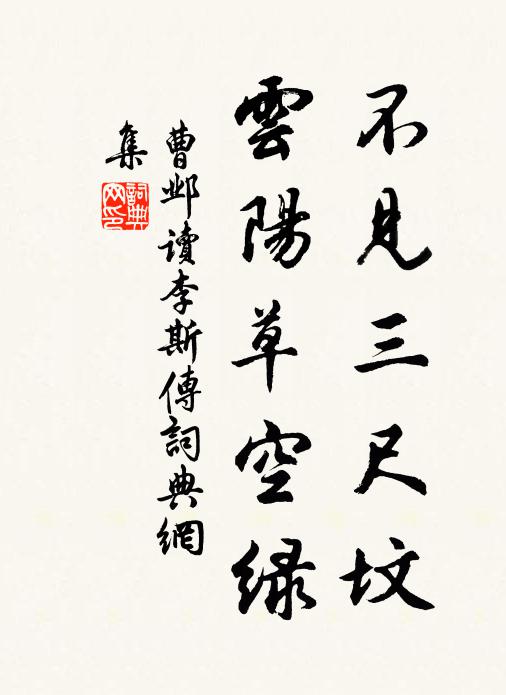 不見三尺墳
雲陽草空綠
曹邺讀李斯傳詞典網
集
詞典網印